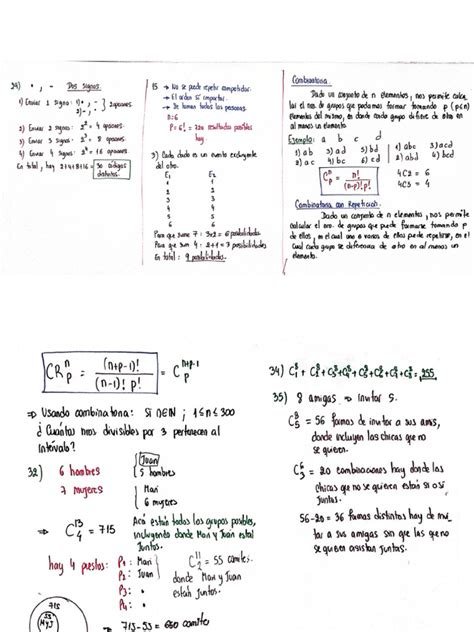 29) • , - Dos signos
1) Enviar 1 signo: 1)• , - } 2 opciones.
2) Enviar 2 signos: 2² = 4 opciones.
3) Enviar 3 signos: 2³ = 8 opciones.
4) Enviar 4 signos: 2⁴ = 16 opciones.
En total, hay 2+4+8+16 = 30 códigos distintos.
→ No se puede repetir competidor.
→ El orden sí importa.
→ Se toman todas las personas.
n=6
P = 6! = 720 resultados posibles hay
9) Cada dado es un evento excluyente
del otro.
E₁ E₂
1 1
2 2
3 3
4 4
5 5
6 6
Para que sume 7: 3x2 = 6 posibilidades
Para que sum 4: 2+1 = 3 posibilidades
En total: 9 posibilidades.
Combinatoria
Dado un conjunto de n elementos, nos permite calcu
lar el nro. de grupos que podamos formar tomando p (p≤n)
elementos del mismo, en donde cada grupo difiere de otro en
al menos un elemento.
Ejemplo: a b c d
1) ab 3) ad 5) bd
2) ac 4) bc 6) cd
1) abc 3) acd
2) abd 4) bcd
Cⁿₚ = n! / (n-p)! p!
4C2 = 6
4C3 = 4
Combinatoria con Repetición.
Dado un conjunto de n elementos, nos permite
calcular el nro. de grupos que puede formarse tomando p
de ellos, en el cual uno o varios de ellos puede repetirse, en el
cual cada grupo se diferencia de otro en al menos un
elemento.
CRⁿₚ = (n+p-1)! / (n-1)! p! = Cₚⁿ⁺ᵖ⁻¹
⇒ Usando combinatoria: Si n∈IN ; 1≤n≤300
¿Cuántos nros divisibles por 3 pertenecen al
intervalo?
32) 6 hombres { Juan
5 hombres
7 mujeres { Mari
6 mujeres
⇒ C₄¹³ = 715 Acá están todos los grupos posibles,
incluyendo donde Mari y Juan están
juntos.
hay 4 puestos: P₁: Mari
P₂: Juan
P₃:
P₄:
C₂¹¹ = 55 comites
donde Mari y Juan
están juntos.
715
55
MyJ
⇒ 715-55 = 660 comités
34) C⁸₁ + C⁸₂ + C⁸₃ + C⁸₄ + C⁸₅ + C⁸₆ + C⁸₇ + C⁸₈ = 255
35) 8 amigas ⇒ invitar 5.
C⁸₅ = 56 formas de invitar a sus amis,
donde incluyen las chicas que no
se quieren.
C⁶₃ = 20 combinaciones hay donde las
chicas que no se quieren están si o si
juntas.
56-20 = 36 formas distintas hay de invi
tar a sus amigas sin que las que no
se quieren asistan juntas.